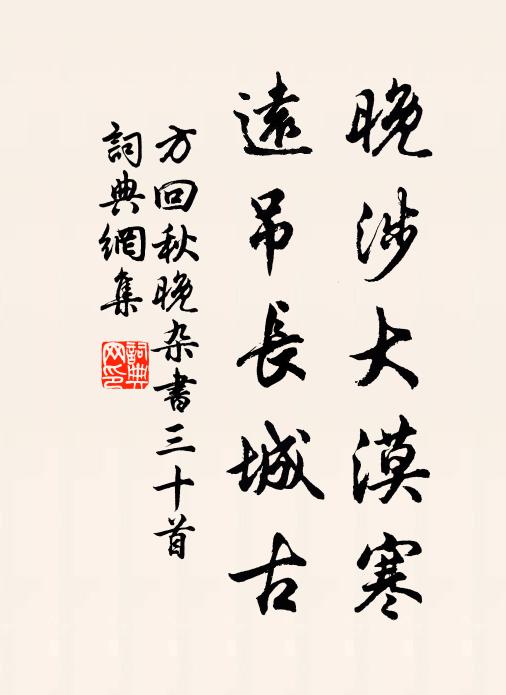 晚涉大漠寒
遠吊長城古
方回秋晚杂書三十首
詞典網集
詞典網印